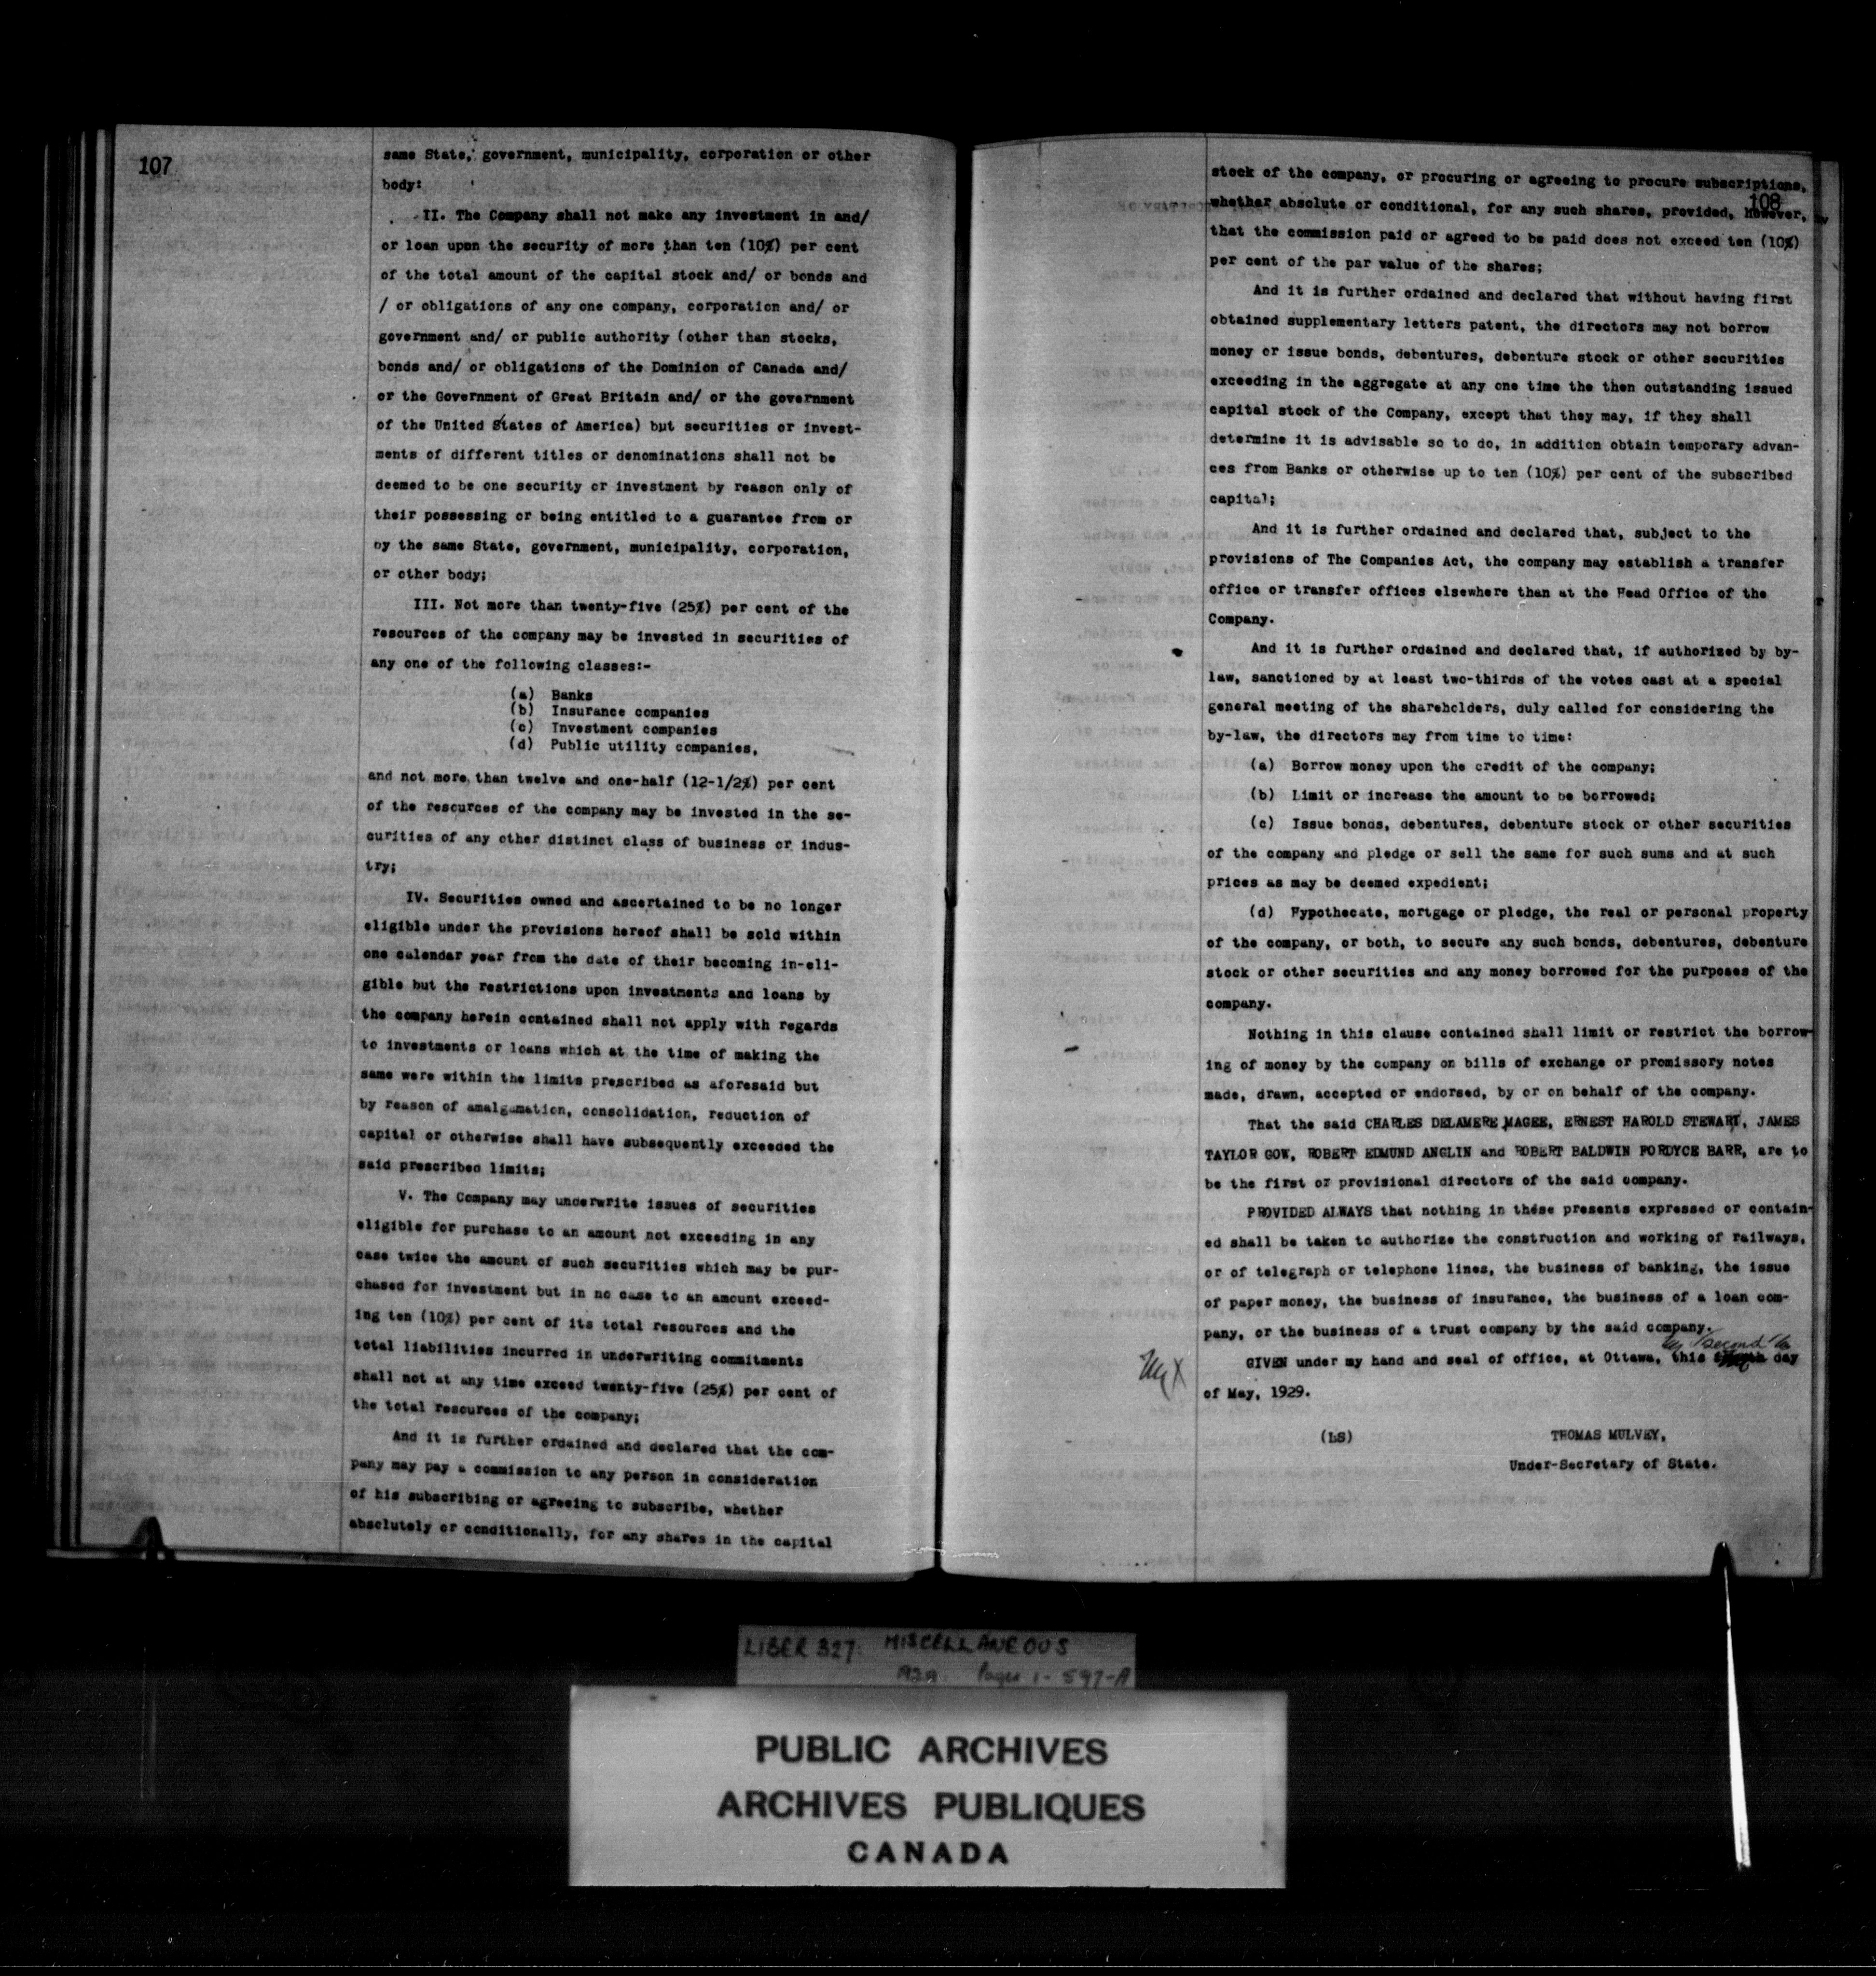 107
same State, government, municipality, corporation or other
body:
II. The Company shall not make any investment in and/
or loan upon the security of more than ten (10%) per cent
of the total amount of the capital stock and/ or bonds and
/ or obligations of any one company, corporation and/ or
government and/ or public authority (other than stocks,
bonds and/ or obligations of the Dominion of Canada and/
or the Government of Great Britain and/ or the government
of the United States of America) but securities or invest-
ments of different titles or denominations shall not be
deemed to be one security or investment by reason only of
their possessing or being entitled to a guarantee from or
by the same State, government, municipality, corporation,
or other body;
III. Not more than twenty-five (25%) per cent of the
resources of the company may be invested in securities of
any one of the following classes:-
(a) Banks
(b) Insurance companies
(c) Investment companies
(d) Public utility companies,
and not more than twelve and one-half (12-1/2%) per cent
of the resources of the company may be invested in the se-
curities of any other distinct class of business or indus-
try;
IV. Securities owned and ascertained to be no longer
eligible under the provisions hereof shall be sold within
one calendar year from the date of their becoming in-eli-
gible but the restrictions upon investments and loans by
the company herein contained shall not apply with regards
to investments or loans which at the time of making the
same were within the limits prescribed as aforesaid but
by reason of amalgamation, consolidation, reduction of
capital or otherwise shall have subsequently exceeded the
said prescribed limits;
V. The Company may underwrite issues of securities
eligible for purchase to an amount not exceeding in any
case twice the amount of such securities which may be pur-
chased for investment but in no case to an amount exceed-
ing ten (10%) per cent of its total resources and the
total liabilities incurred in underwriting commitments
shall not at any time exceed twenty-five (25%) per cent of
the total resources of the company;
And it is further ordained and declared that the com-
pany may pay a commission to any person in consideration
of his subscribing or agreeing to subscribe, whether
absolutely or conditionally, for any shares in the capital
108
stock of the company, or procuring or agreeing to procure subscriptions,
whether absolute or conditional, for any such shares, provided, however,
that the commission paid or agreed to be paid does not exceed ten (10%)
per cent of the par value of the shares;
And it is further ordained and declared that without having first
obtained supplementary letters patent, the directors may not borrow
money or issue bonds, debentures, debenture stock or other securities
exceeding in the aggregate at any one time the then outstanding issued
capital stock of the Company, except that they may, if they shall
determine it is advisable so to do, in addition obtain temporary advan-
ces from Banks or otherwise up to ten (10%) per cent of the subscribed
capital;
And it is further ordained and declared that, subject to the
provisions of The Companies Act, the company may establish a transfer
office or transfer offices elsewhere than at the Head Office of the
Company.
And it is further ordained and declared that, if authorized by by-
law, sanctioned by at least two-thirds of the votes cast at a special
general meeting of the shareholders, duly called for considering the
by-law, the directors may from time to time:
(a) Borrow money upon the credit of the company;
(b) Limit or increase the amount to be borrowed;
(c) Issue bonds, debentures, debenture stock or other securities
of the company and pledge or sell the same for such sums and at such
prices as may be deemed expedient;
(d) Hypothecate, mortgage or pledge, the real or personal property
of the company, or both, to secure any such bonds, debentures, debenture
stock or other securities and any money borrowed for the purposes of the
company.
Nothing in this clause contained shall limit or restrict the borrow-
ing of money by the company on bills of exchange or promissory notes
made, drawn, accepted or endorsed, by or on behalf of the company.
That the said CHARLES DELAMERE MAGEE, ERNEST HAROLD STEWART, JAMES
TAYLOR GOW, ROBERT EDMUND ANGLIN and ROBERT BALDWIN FORDYCE BARR, are to
be the first or provisional directors of the said company.
PROVIDED ALWAYS that nothing in these presents expressed or contain-
ed shall be taken to authorize the construction and working of railways,
or of telegraph or telephone lines, the business of banking, the issue
of paper money, the business of insurance, the business of a loan com-
pany, or the business of a trust company by the said company.
second
GIVEN under my hand and seal of office, at Ottawa, this day
of May, 1929.
(LS)
THOMAS MULVEY,
Under-Secretary of State.
LIBER 327: MISCELLANEOUS
Pages 1-597-A
PUBLIC ARCHIVES
ARCHIVES PUBLIQUES
CANADA